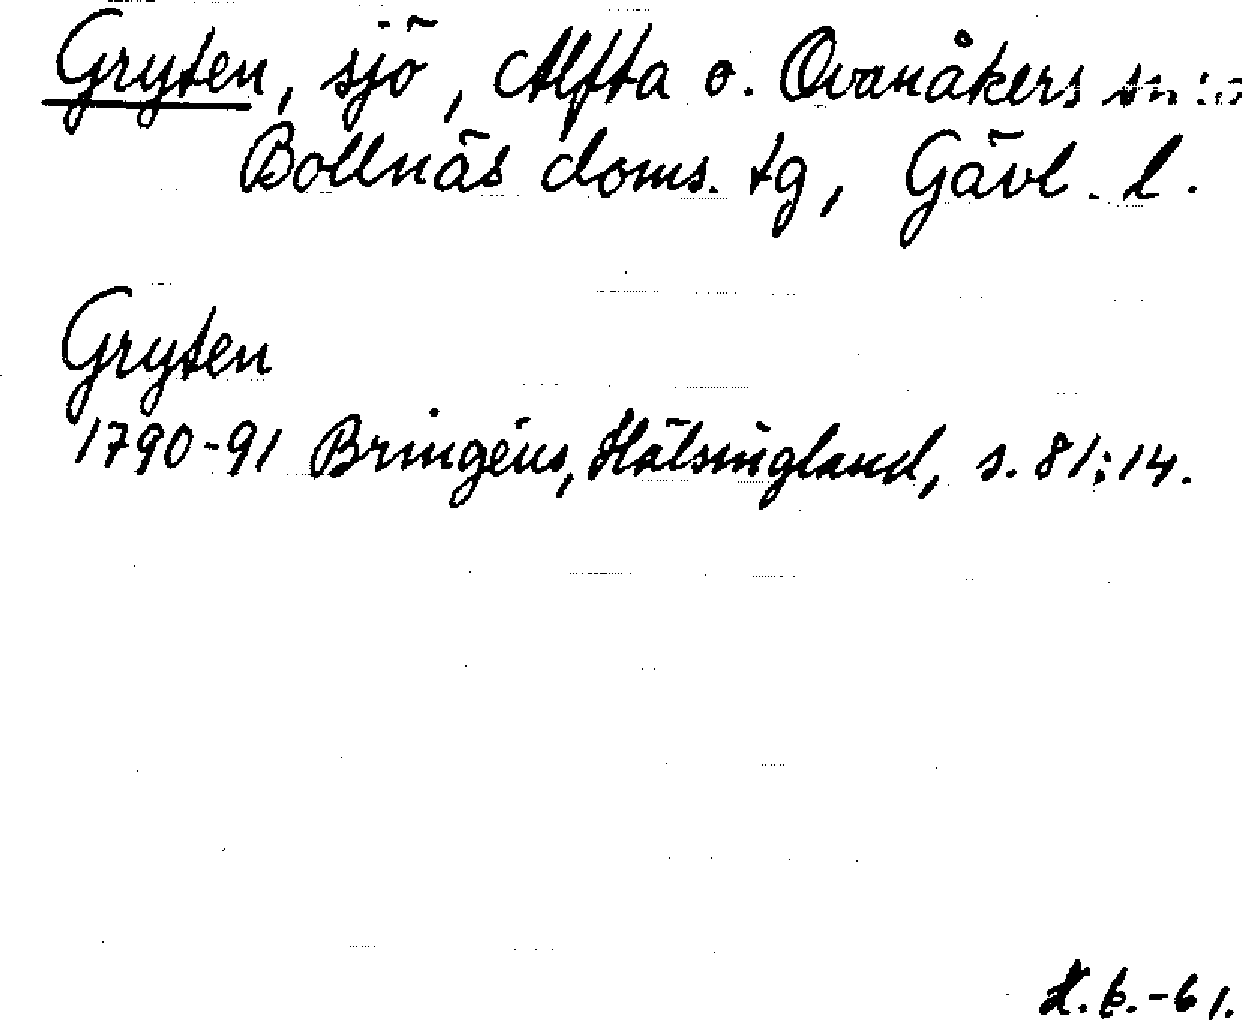 Gryten, sjö, Alfta o. Ovanåkers sn:r
Bollnäs doms. tg, Gävl. l.
Gryten
1790-91 Bringéus, Hälsingland, s. 81:14.
-61.